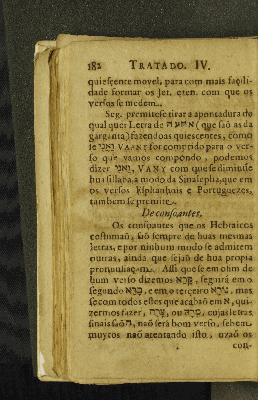 182 TRATADO. IV.
quiescente movel, para com mais facili-
dade formar os Jet. eten. com que os
versos se medem.
Seg. premitese tirar a apontadura do
qual quer Letra de אחעה (que saõ as da
garganta) fazendoas quiescentes, como
le וַאֲנִי VAANY for comprido para o ver-
so que vamos compondo, podemos
dizer וַאנִי, VANY com que se diminuse
hua sillaba, a modo da Sinalepha, que em
os versos Esphanhois e Portuguezes,
tambem se premite.
De consoantes.
Os consoantes que os Hebraicos
costumaũ, saõ sempre de huas mesmas
letras, e por ninhum modo se admitem
outras, ainda que sejaõ de hua propia
pronunsiaçam. Assi que se em ohm de
hum verso dizemos בָּרָא, seguirá em o
segundo קָרָא, e em o terceiro מָרָא, mas
se com todos estes que acabaõ em א, qui-
zermos fazer, שָׂרָה, ou צָרָה, cujas letras
sinais saõ ה, naõ será bom verso, se bem
muytos naõ atentando isto, uzaõ os
con-